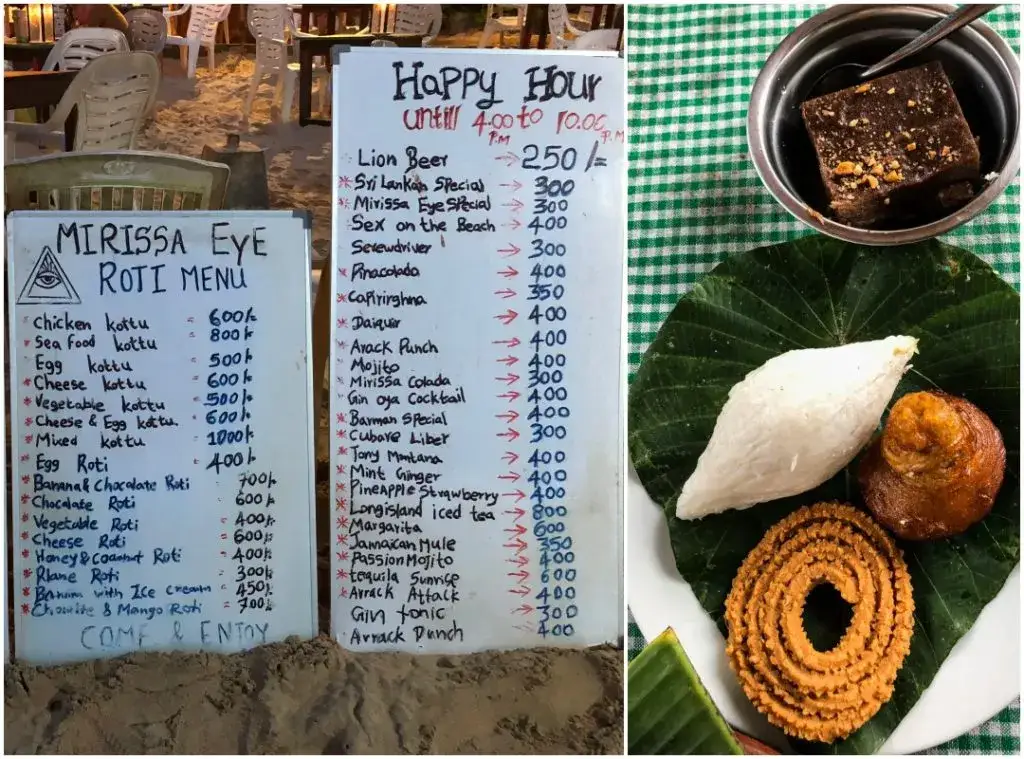 MIRISSA EYE
ROTI MENU
* Chicken kottu = 600/=
* Sea Food kottu = 800/=
Egg kottu = 500/=
* Cheese kottu = 600/=
* Vegetable kottu = 500/=
* Cheese & Egg kottu. = 600/=
* Mixed kottu = 1000/=
* Egg Roti = 400/=
* Banana & Chocolate Roti = 700/=
* Chocolate Roti = 600/=
* Vegetable Roti = 400/=
* Cheese Roti = 600/=
* Honey & Coconut Roti = 400/=
* Plane Roti = 300/=
* Banana with Ice cream = 450/=
* & Mango Roti = 700/=
COME & ENJOY
Happy Hour
untill 4.00 to 10.00
P.M P.M
Lion Beer → 250/=
* Sri Lankan Special → 300
* Mirissa Eye Special → 300
Sex on the Beach → 400
Screwdriver → 300
* Pinacolada → 400
* Capirirghna → 350
* Daiquir → 400
* Arack Punch → 400
Mojito → 400
* Mirissa Colada → 300
Gin oya Cocktail → 400
* Barman Special → 400
* Cubare Liber → 300
* Tony Montana → 400
* Mint Ginger → 400
* Pineapple Strawberry → 400
* Longisland iced tea → 800
* Margarita → 600
* Jamaican Mule → 350
* Passion Mojito → 400
* tequila Sunrise → 600
* Arrack Attack → 400
Gin tonic → 300
Arrack Punch → 400